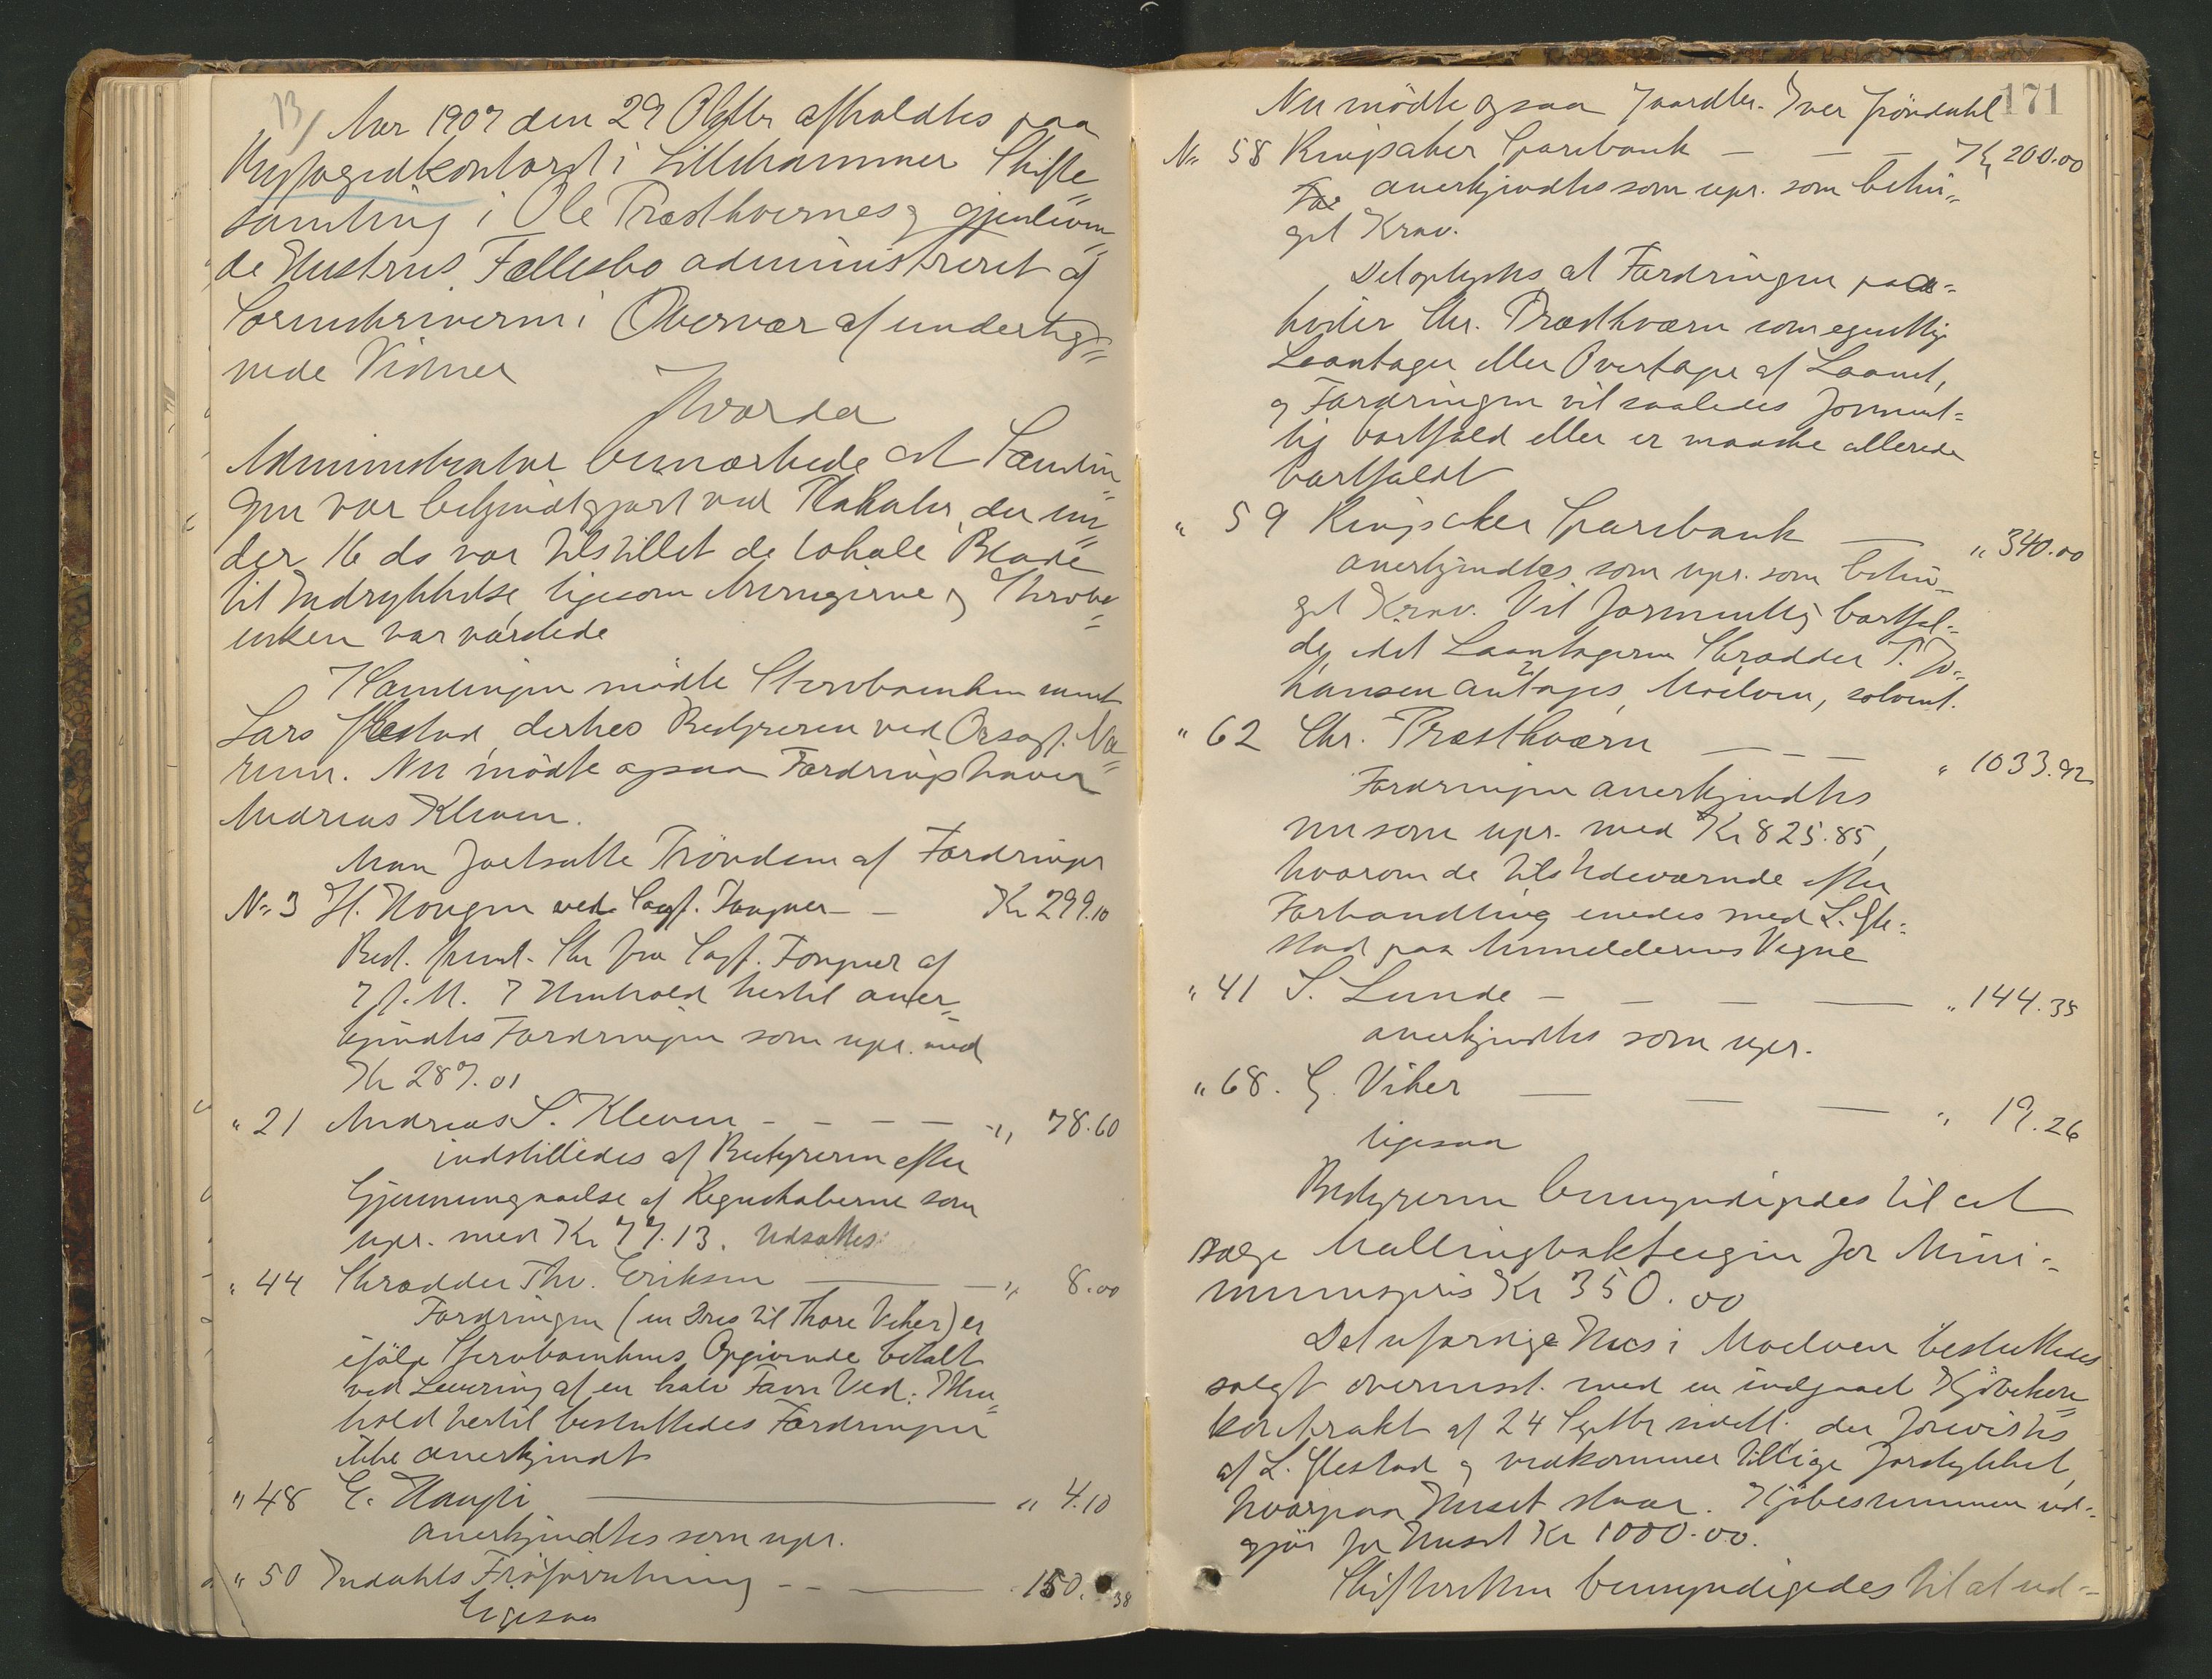 13/ Aar 1907 den 29 Oktbr afholdtes paa
i Lillehammer Skifte„
samling i Ole Præsthvernes og gjenleven„
de Hustrus Fællesbo administreret af
Sorenskriveren i Overvær af underteg„
nede Vidner
Hvorda
Administrator bemærkede at Samlin„
gen var bekjendtgjort ved Plakater, der un„
der 16 ds var tilstillet de lokale Blade
til Indrykkelse, ligesom Arvingerne og Skrobo„
enken var varslede
I Samlingen mödte Stervboenken samt
Lars Flestad, derhos Bestyreren ved Orsagf. Næ„
rum. Nu mödte ogsaa Fordringshaver
Andreas Kleven.
Man fortsatte Prövelsen af Fordringer
No 3 H. Haugen ved Sagf. Kr 299.10
Best. Skr fra Sagf. af
7 f. M. I Henhold hertil aner„
kjendtes Fordringen som upr. med
Kr 287.01
" 21 Andreas S. Kleven - - - - - " 78.60
indstilledes af Bestyreren efter
Gjennemgaaelse af Regnskaberne som
upr. med Kr 77.13. Udsattes
" 44 Skrædder Thv. Eriksen — — " 8.00
Fordringen (en Dres til Thore Viker) er
ifölge Stervboenkens Opgivende betalt
ved Levering af en halv Favn Ved. I Hen„
hold hertil besluttedes Fordringen
ikke anerkjendt
" 48 E. Haugli — " 4.10
anerkjendtes som upr.
" 50 Indahls Fröforretning - - — 150.38
ligesaa
171
Nu mödte ogsaa Gaardbr. Iver Fröisdahl
No 58 Ringsaker Sparebank — — — Kr 200.00
anerkjendtes som upr. som betin„
get Krav.
Det oplystes at Fordringen paa=
hviler Chr. Præsthværn som egentlig
Laantager eller Overtager af Laanet,
og Fordringen vil saaledes forment=
lig bortfald eller er maaske allerede
bortfaldt
" 59 Ringsaker Sparebank — " 340.00
anerkjendtes som upr. som betin„
get Krav. Vil formentlig bortfal=
de, idet Laantageren Skrædder P. Jo=
hansen antages, Moelven, solvent.
" 62 Chr. Præsthværn — — — " 1033.92
Fordringen anerkjendtes
nu som upr. med Kr 825.85,
hvorom de tilstedeværende efter
Forhandling enedes med L. Fle=
stad paa Anmelderens Vegne
" 41 S. Lunde — — — — " 144.35
anerkjendtes som upr.
" 68. G. Viker — — — " 19.26
ligesaa
Bestyreren bemyndigedes til at
sælge Mallingbakteigen for Mini=
mumspris Kr 350.00
Det uferdige Hus i Moelven besluttedes
solgt overensst. med en indgaaet Kjöbekon„
kontrakt af 24 Septbr sidstl. der forevistes
af L. Flestad og vedkommer tillige Jordstykket,
hvorpaa Huset staar. Kjöbesummen ud=
gjör for Huset Kr 1000.00.
Skifteretten bemyndigedes til at ud=